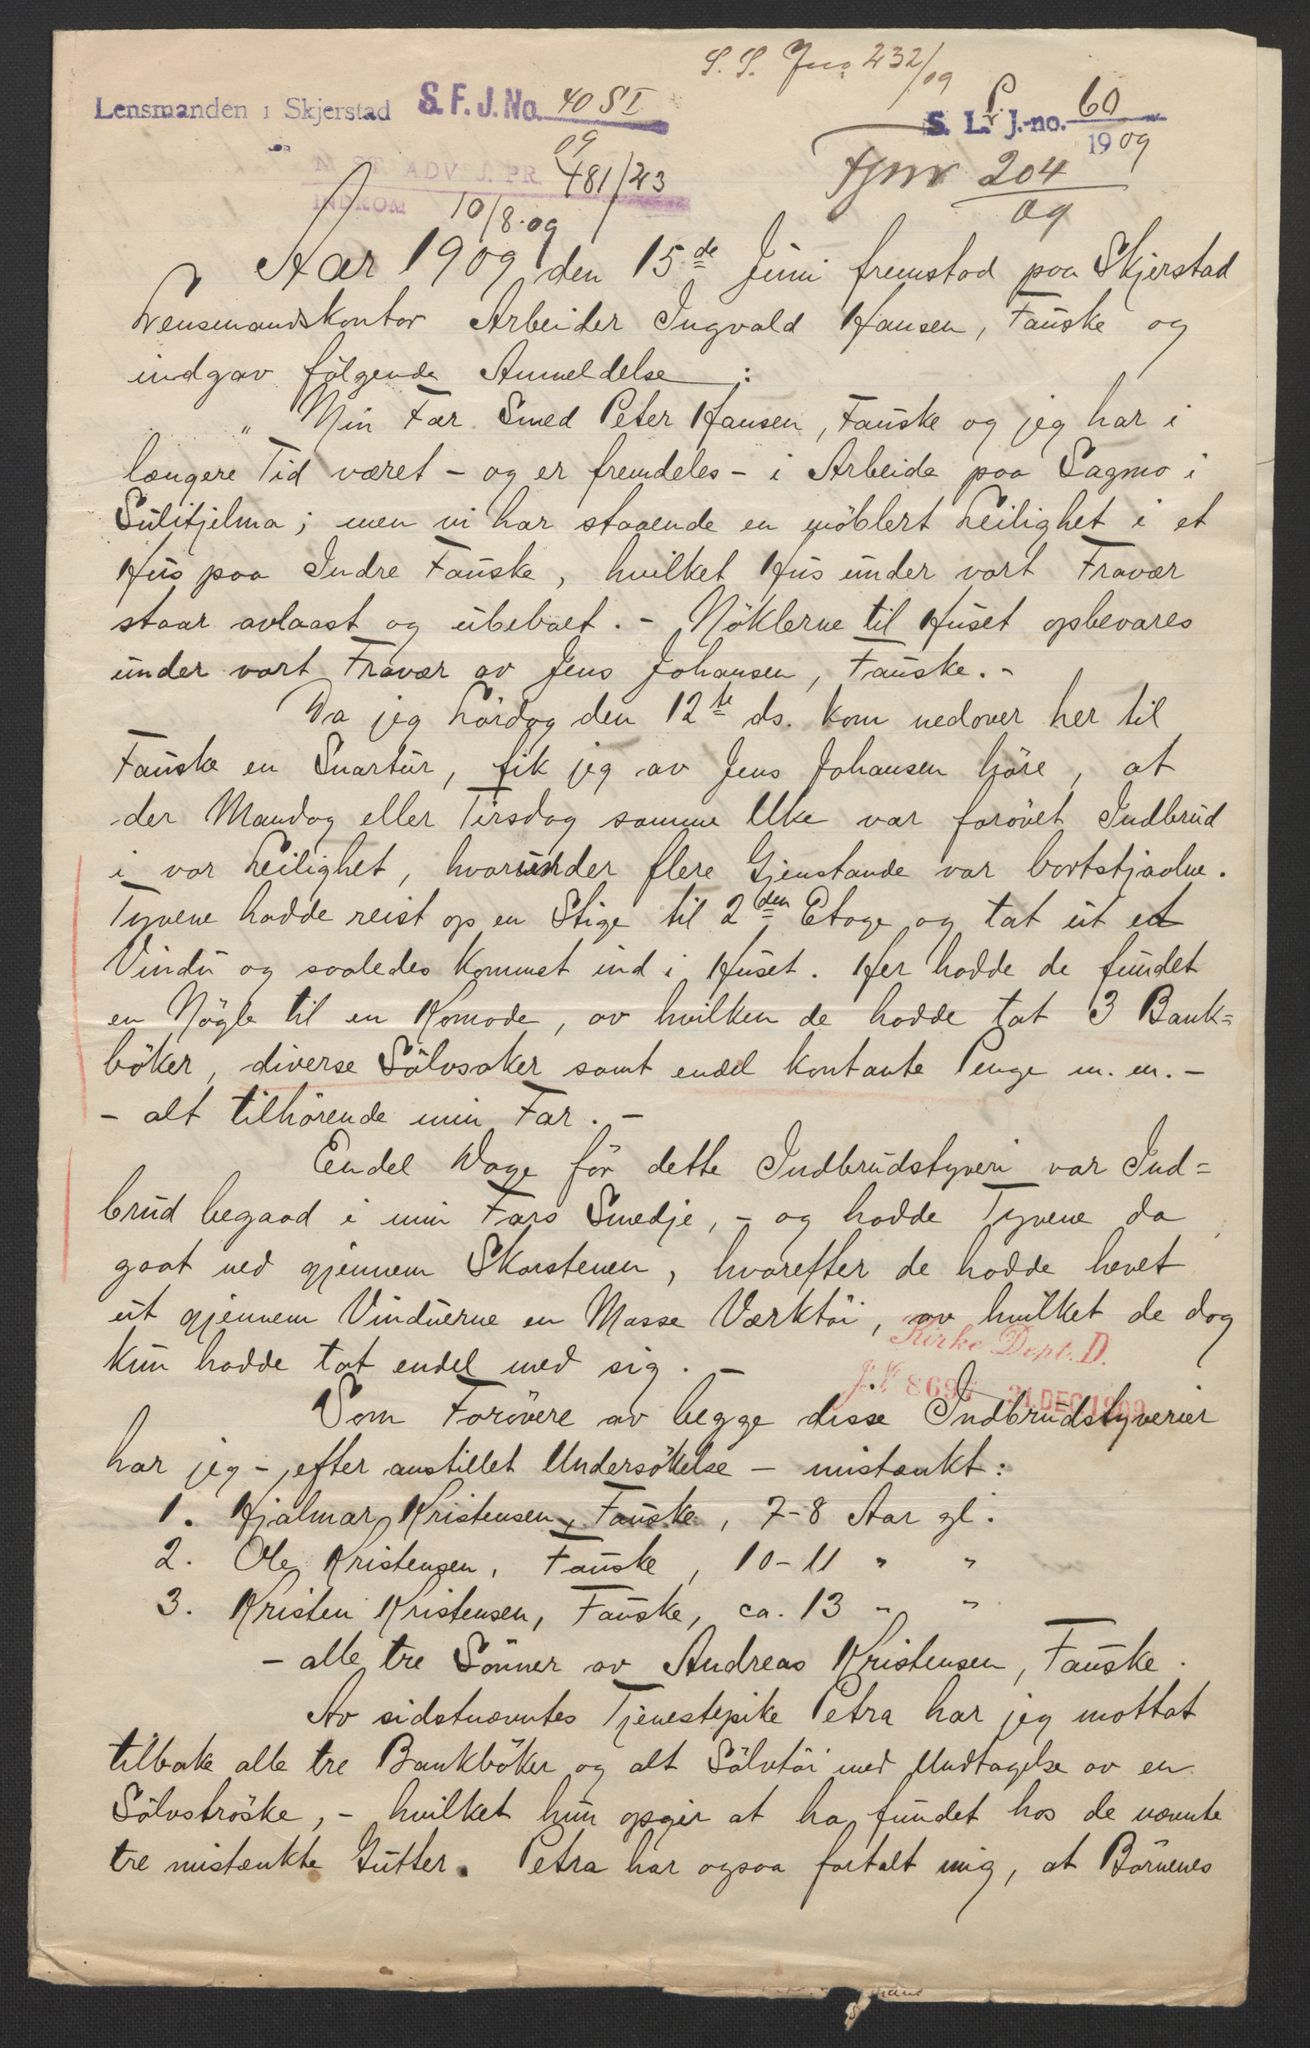 S. S. Jno 232/09
Lensmanden i Skjerstad S. F. J. No. 40 SI
09
S. L. P. J.-no. 60
1909
ADV. J. PR. 481/23
INDKOM 10/8.09
Fjnr 204
09
Aar 1909 den 15de Juni fremstod paa Skjerstad
Lensmandskontor Arbeider Ingvald Hansen, Fauske og
indgav følgende Anmeldelse :
„ Min Far Smed Peter Hansen, Fauske og jeg har i
længere Tid været - og er fremdeles - i Arbeide paa Sagmo i
Sulitjelma; men vi har staaende en møblert Leilighet i et
Hus paa Indre Fauske, hvilket Hus under vort Fravær
staar avlaast og ubeboet. - Nøklerne til Huset opbevares
under vort Fravær av Jens Johansen, Fauske. -
Da jeg Lørdag den 12te ds. kom nedover her til
Fauske en Snartur, fik jeg av Jens Johansen høre, at
der Mandag eller Tirsdag samme Uke var forøvet Indbrud
i vor Leilighet, hvorunder flere Gjenstande var bortstjaalne.
Tyvene hadde reist op en Stige til 2den Etage og tat ut et
Vindu og saaledes kommet ind i Huset. Her hadde de fundet
en Nøgle til en Komode, av hvilken de hadde tat 3 Bank=
bøker, diverse Sølvsaker samt endel kontante Penge m. m. -
- alt tilhørende min Far. -
Endel Dage før dette Indbrudstyveri var Ind=
brud begaad i min Fars Smedje, - og hadde Tyvene da
gaat ned gjennem Skorstenen, hvorefter de hadde hevet
ut gjennem Vinduerne en Masse Værktøi, av hvilket de dog
kun hadde tat endel med sig. -
Kirke Dept. D.
J. № 869 31 DEC 1909
Som Forøvere av begge disse Indbrudstyverier
har jeg - efter anstillet Undersøkelse - mistænkt:
1. Hjalmar Kristensen, Fauske, 7-8 Aar gl.
2. Ole Kristensen, Fauske, 10-11 " "
3. Kristen Kristensen, Fauske, ca. 13 " "
- alle tre Sønner av Andreas Kristensen, Fauske.
Av sidstnævntes Tjenestepike Petra har jeg mottat
tilbake alle tre Bankbøker og alt Sølvtøi med Undtagelse av en
Sølvstrøske, - hvilket hun opgir at ha fundet hos de nævnte
tre mistænkte Gutter. Petra har ogsaa fortalt mig, at Børnenes